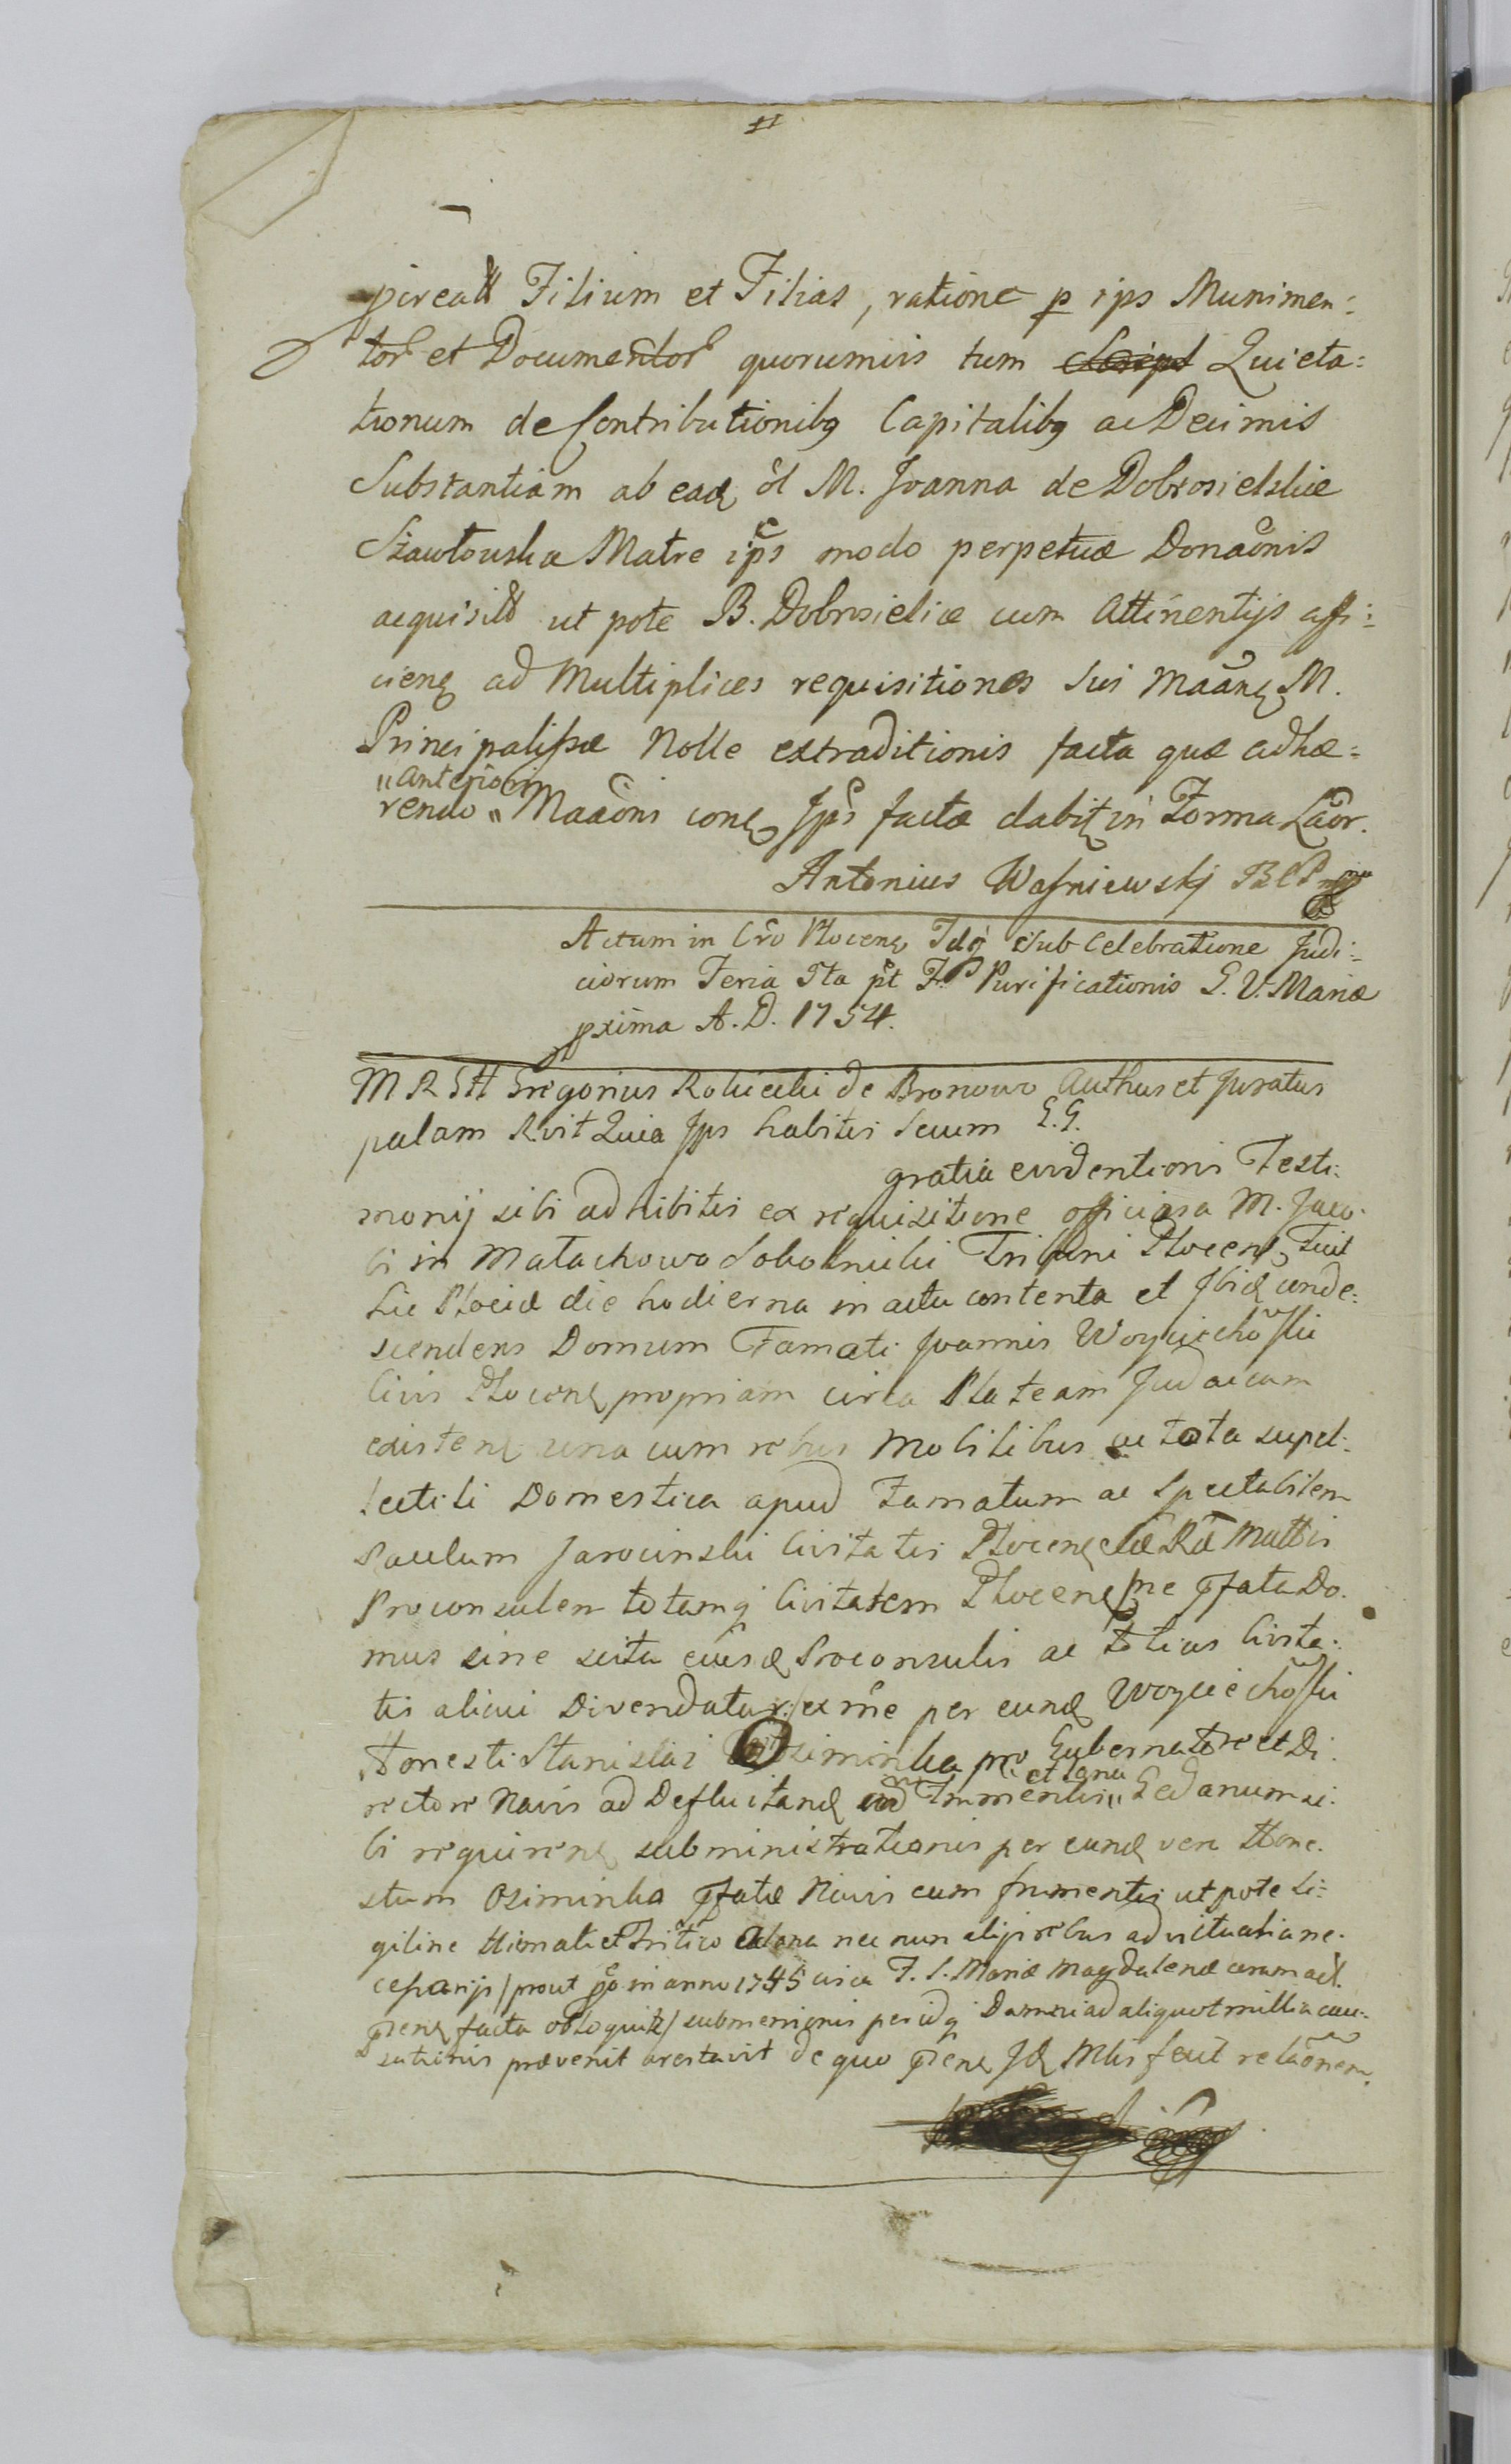 pireatt Filium et Filias, ratione p ips Munimen:
tor et Documentor quorumvis tum Script Quieta:
tionum de Contributionibq Capitalibq ac Decimis
Substantiam ab eadq ol M. Joanna de Dobrosielskie
Szawłouska Matre ips modo perpetuæ Donaonis
acquisitt ut pote B. Dobrosielice cum Attinentijs affi:
cienq ad Multiplices requisitiones Sui Maanq M.
Principalissæ Nolle extraditionis facta quæ adhæ:
"anteriori
rendo " Maaoni conq Jps factæ dabit in Forma Laor.
Antonius Wasniewskj BCP mp
Actum in Cro Plocenq Fdq Sub Celebratione Judi:
ciorum Feria Sta pt F. Purificationis G. V. Mariæ
pxima A. D. 1754.
M R SH Gregorius Roliecki de Bronowo Authus et Juratus
palam Rvit Quia Jps habitis Secum G.G.
gratia evidentioris Testi:
monij sibi adhibitis ex requisitione officiosa M. Jaco:
bi in Małachowo Sokolnicki Tribuni Plocenq Fuit
hic Plociæ die hodierna in actu contenta et Jbidq conde:
scendens Domum Famati Joannis Woyciechoski
Civis Plocenq propriam circa Plateam Judaicam
existenq una cum rebus Mobilibus ac tota supel:
lectili Domestica apud Famatum ac Spectabilem
Paulum Jarocinski Civitatis Plocenq Sæ Ræ Mattis
Proconsulem totamq Civitatem Plocenq ne pfata Do:
mus sine scitu eiusdq Proconsulis ac totius Civita:
tis alicui Divendatur / ex rne per eundq Woyciechoski
Honesti Stanislai Osiminka pro Gubernatore et Di:
et lana
rectore Navis ad Defluitandq cum Frumentis " Gedanum si:
bi requirenq subministrationis per eundq vero Hone:
stum Osiminka pfatæ Navis cum frumentis ut pote Si:
giline Hiemali et Tritico nec non alijs rebus ad victualia ne:
cessarijs / prout po in anno 1745 circa F. S. Mariæ Magdalenæ coram act.
prenq facta obloquitr / submersionis per idq Damni ad aliquot millia cau:
sationis prævenit arestavit de quo prenq Jdq Mtis fecit relaonem.